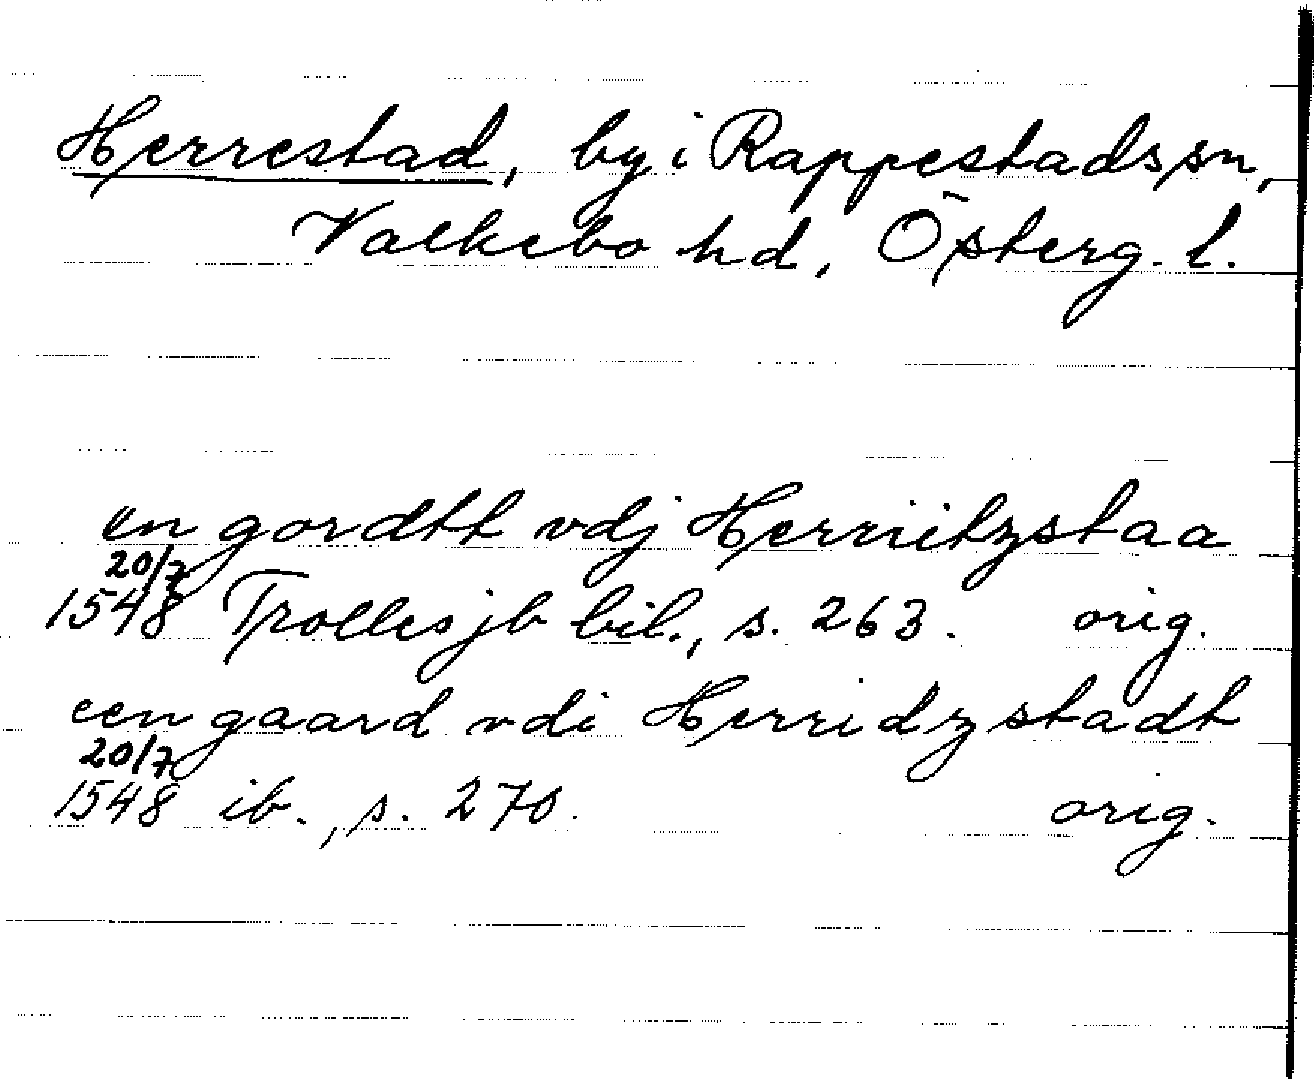 Herrestad, by i Rappestads sn,
Valkebo hd, Österg. l.
en gordtt vdj Herriitzstaa
20/7
1548 Trolles jb bil., s. 263. orig.
een gaard vdi Herridzstadt
20/7
1548 ib., s. 270. orig.